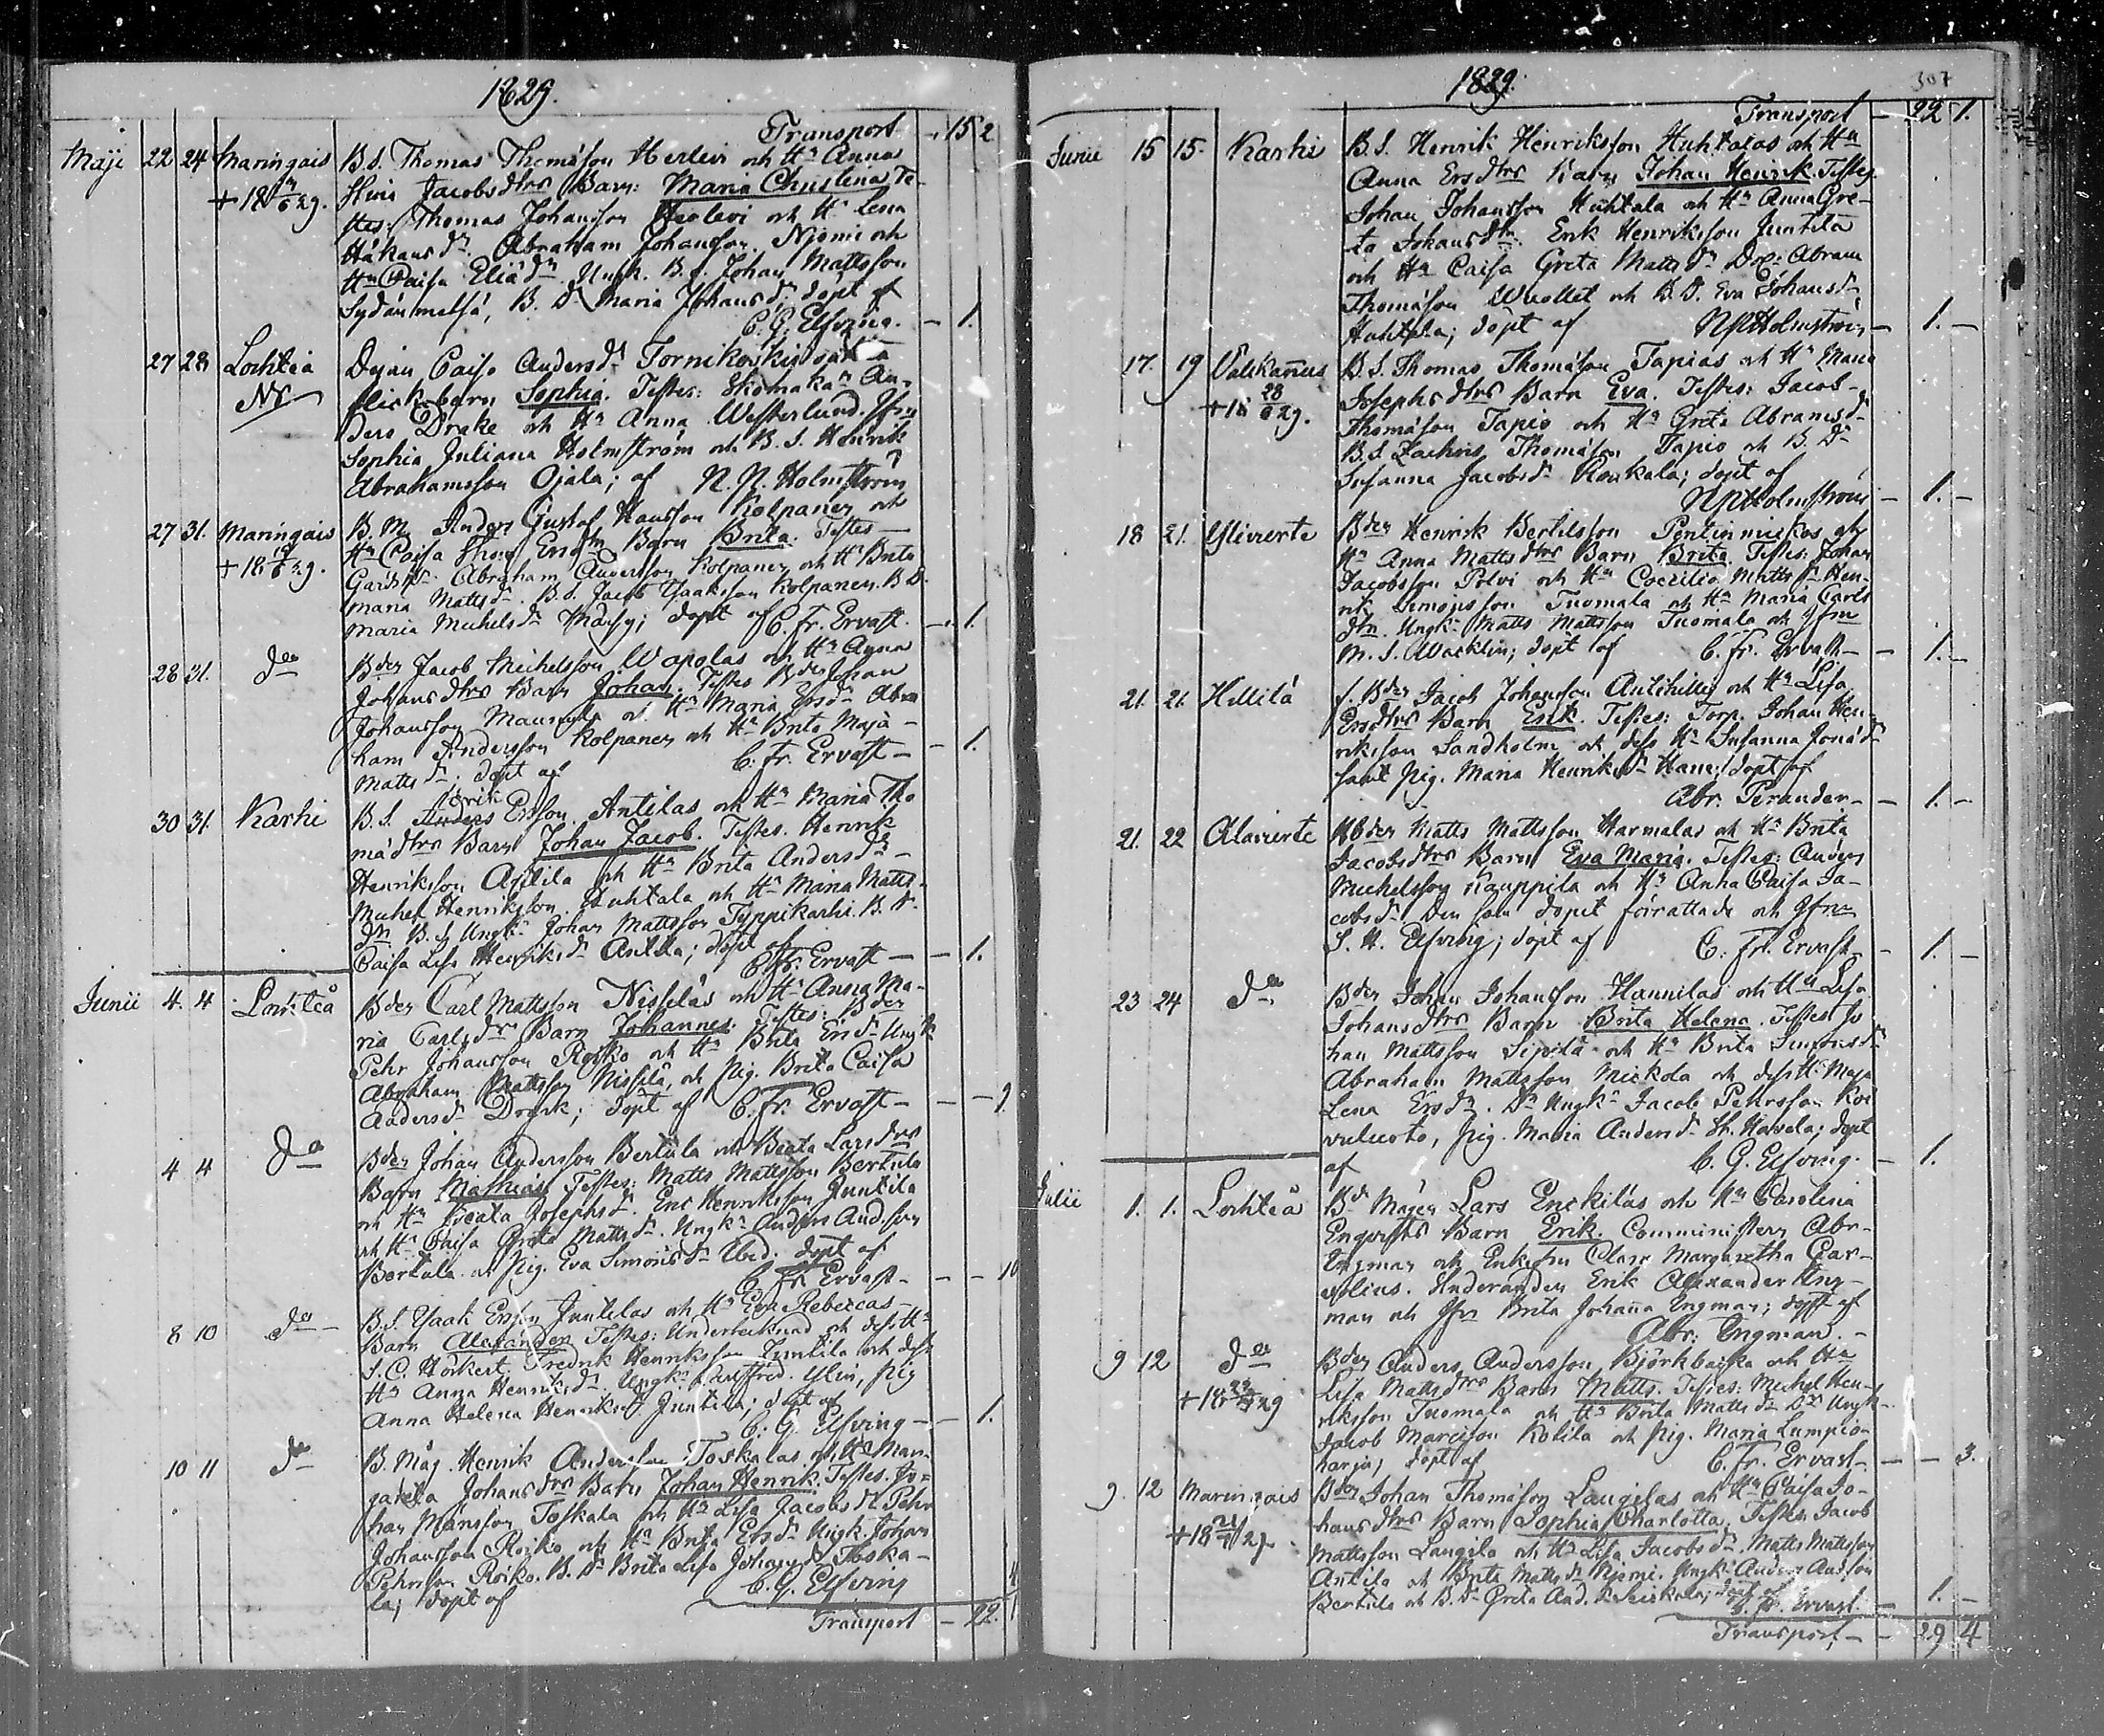 1829.
Transport - 15 2
Maji 22 24 Maringais B.S. Thomas Thomasson Herlevi och Hu Anna
+ 18 29. Stina Jacobsdtrs Barn: Maria Christena Te-
stes: Thomas Johansson Herlevi och Hu Lena
Håkansdr. Abraham Johansson Njomi och
Hu Caisa Eliædr Ungk. B.S. Johan Mattsson
Sydänmetsä, B.Dr Maria Johansdr döpt af
C. G. Elfving. - 1.
27 28 Lochteå Pigan Caisa Andersdr Tornikoskis oäkta
flickebarn Sophia. Testes: Skomakarn An-
ders Drake och Hu Anna Westerlund. Jfru
Sophia Juliana Holmström och B.S. Henrik
Abrahamsson Ojala; af N. N. Holmström
27 31. Maringais B. M. Anders Gustaf Hansson Kolpanen och
+ 18 29. Hu Caisa Ersdtrs Barn Brita. Testes
Abraham Andersson Kolpanen och Hu Brita
Maria Mattsdr. B.S. Jacob Isaaksson Kolpanen. B.D.
Maria Michelsdr döpt af C. Fr. Ervast. - 1.
28 31. do Bden Jacob Michelsson Wapolas och Hu Anna
Johansdtrs Barn Johan. Testes Bden Johan
Johansson Maunula och Hu Maria Ersdr Abra
ham Andersson Kolpanen och Hu Brita Maja
Mattsdr. döpt af C. Fr. Ervast - - 1.
Erik
30 31. Karhi B.S. Anders Ersson Antilas och Hu Maria Tho
mædtrs Barn Johan Jacob. Testes. Henrik
Henriksson Antila och Hu Brita Andersdr
Michel Henriksson Huhtala och Hu Maria Matts-
dr B.S. Ungk. Johan Mattsson Typpikarhi. B.D.
Caisa Lisa Henriksdr Antila; döpt af
C. Fr. Ervast - - 1.
Junii 4. 4 Lochteå Bden Carl Mattsson Nissiläs och Hu Anna Ma-
ria Carlsdrs Barn Johannes. Testes: Bden
Pehr Johansson Roiko och Hu Brita Ersdr Ungk
Abraham Mattsson Nissilä, och Pig. Brita Caisa
Andersdr döpt af C. Fr. Ervast - - - 9.
4 4 do Bden Johan Andersson Bertula och Beata Larsdrs
Barn Mathias Testes: Matts Mattsson Bertula
och Hu Beata Josephsdr. Eric Henriksson Juntila
och Hu Caisa Greta Mattsdr. Ungk. Anders Andsson
Bertula och Pig. Eva Simonsdr Ibid. döpt af
C. Fr. Ervast - - - 10
8 10 do B.S. Isaak Ersson Juntilas och Hu Eva Rebeccas
Barn Alexander Testes: Undertecknad och dess Hu
S. C. Hörkert. Fredrik Henriksson Juntila och dess
Hu Anna Henriksdr. Ungk. Gustfred. Ulin, Pig
Anna Helena Henriksdr Juntila; döpt af
C. G. Elfving - - 1.
10 11 do B. Måg. Henrik Andersson Toskalas och Hu Mar-
gareta Johansdtrs Barn Johan Henrik. Testes. Jo-
han Månsson Toskala och Hu Lisa Jacobsdr Pehr
Johansson Roiko och Hu Brita Ersdr Ungk. Johan
Pehrsson Roiko. B.Dr Brita Lisa Johansdr Toska-
la; döpt af C. G. Elfving
Transport - 22. 1
1829. 307
Transport - 22 1.
Junii 15 15. Karhi B.S. Henrik Henriksson Huhtalas och Hu
Anna Ersdtrs Barn Johan Henrik. Testes.
Johan Johansson Huhtala och Hu Anna Gre-
ta Johansdtr. Erik Henriksson Juntila
och Hu Caisa Greta Mattsdr Abram
Thomasson Wuollet och B.D. Eva Johansdr
Huhtala; döpt af NNHolmström - 1. -
17. 19 Välikannus B.S. Thomas Thomasson Tapias och Hu Maria
+ 18 28 29. Josephsdtrs Barn Eva. Testes: Jacob
Thomasson Tapio och Hu Greta Abramsdr
B.S. Zachris Thomasson Tapio och B.Dr
Susanna Jacobsdr Roukala; döpt af
NNHolmström - 1. -
18 21. Ylivierte Bden Henrik Bertilsson Pentinmickos och
Hu Anna Mattsdtrs Barn Brita Testes. Johan
Jacobsson Polvi och Hu Coecilia Mattsdr Hen-
rik Simonsson Tuomala och Hu Maria Carls
dtr. Ungk. Matts Mattsson Tuomala och Jfru
M. S. Wacklin; döpt af C. Fr. Ervast - - 1. -
21. 21. Hillilä f. Bden Jacob Johansson Antihilli och Hu Lisa
Ersdtrs Barn Erik. Testes: Torp. Johan Hen-
riksson Sandholm och dess Hu Susanna Jonædr
samt Pig. Maria Henriksdr Hane; döpt af
Abr. Perander - - 1. -
21. 22 Alavierte Bden Matts Mattsson Harmalas och Hu Brita
Jacobsdtrs Barn Eva Maria. Testes: Anders
Michelsson Kauppila och Hu Anna Caisa Ja-
cobsdr Den som döpet förrättade och Jfru
S. H. Elfving; döpt af C. Fr. Ervast - 1. -
23 24 do Bden Johan Johansson Hannilas och Hu Lisa
Johansdtrs Barn Brita Helena. Testes Jo
han Mattsson Sipilä och Hu Brita Simonsdr
Abraham Mattsson Mickola och dess Hu Maja
Lena Ersdr. Dr Ungk. Jacob Pehrsson Koi
vuluoto, Pig. Maria Andersdr Havela; döpt
af C. G. Elfving. - 1.
Julii 1. 1. Lochteå Bd. Mågen Lars Erickiläs och Hu Carolina
Engvists Barn Erik. Comministern Abr.
Engman och Enkefru Clara Margaretha Car-
Studeranden Erik Alexander Eng-
man och Jfru Brita Johanna Engman; döpt af
Abr: Engman. -
9 12 do Bden Anders Andersson Björkbacka och Hu
+ 18 29 Lisa Mattsdtrs Barn Matts. Testes: Michel Hen-
riksson Tuomala och Hu Brita Mattsdr Dr Ungk
Jacob Marcsson Kotila och Pig. Maria Lumpio-
harju; döpt af C. Fr. Ervast - - - 3.
9. 12 Maringais Bden Johan Thomasson Laugilas och Hu Caisa Jo-
+ 18 21 29. hansdtrs Barn Sophia Charlotta. Testes Jacob
Mattsson Laugila och Hu Lisa Jacobsdr. Matts Mattsson
Antila och Brita Mattsdr Njomi. Ungk. Anders Andsson
Bertula och B.Dr Greta And.dr Seiskala; döpt af
C. Fr. Ervast. - 1. -
Transport - - 29 4